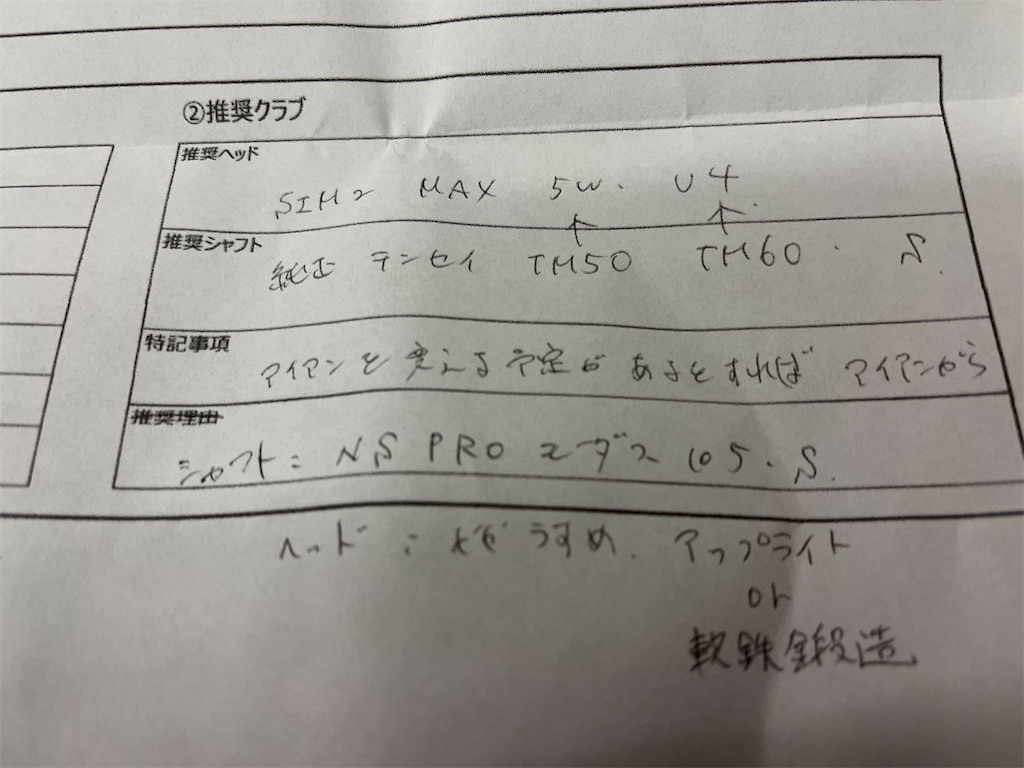 ②推奨クラブ
推奨ヘッド
SIM2 MAX 5W. U4
推奨シャフト
純正 テンセイ TM50 TM60. S.
特記事項
アイアンを変える予定があるとすれば アイアンから
推奨理由
シャフト: NS PRO モーダス 105. S.
ヘッド: うすめ. アップライト
or
軟鉄鍛造